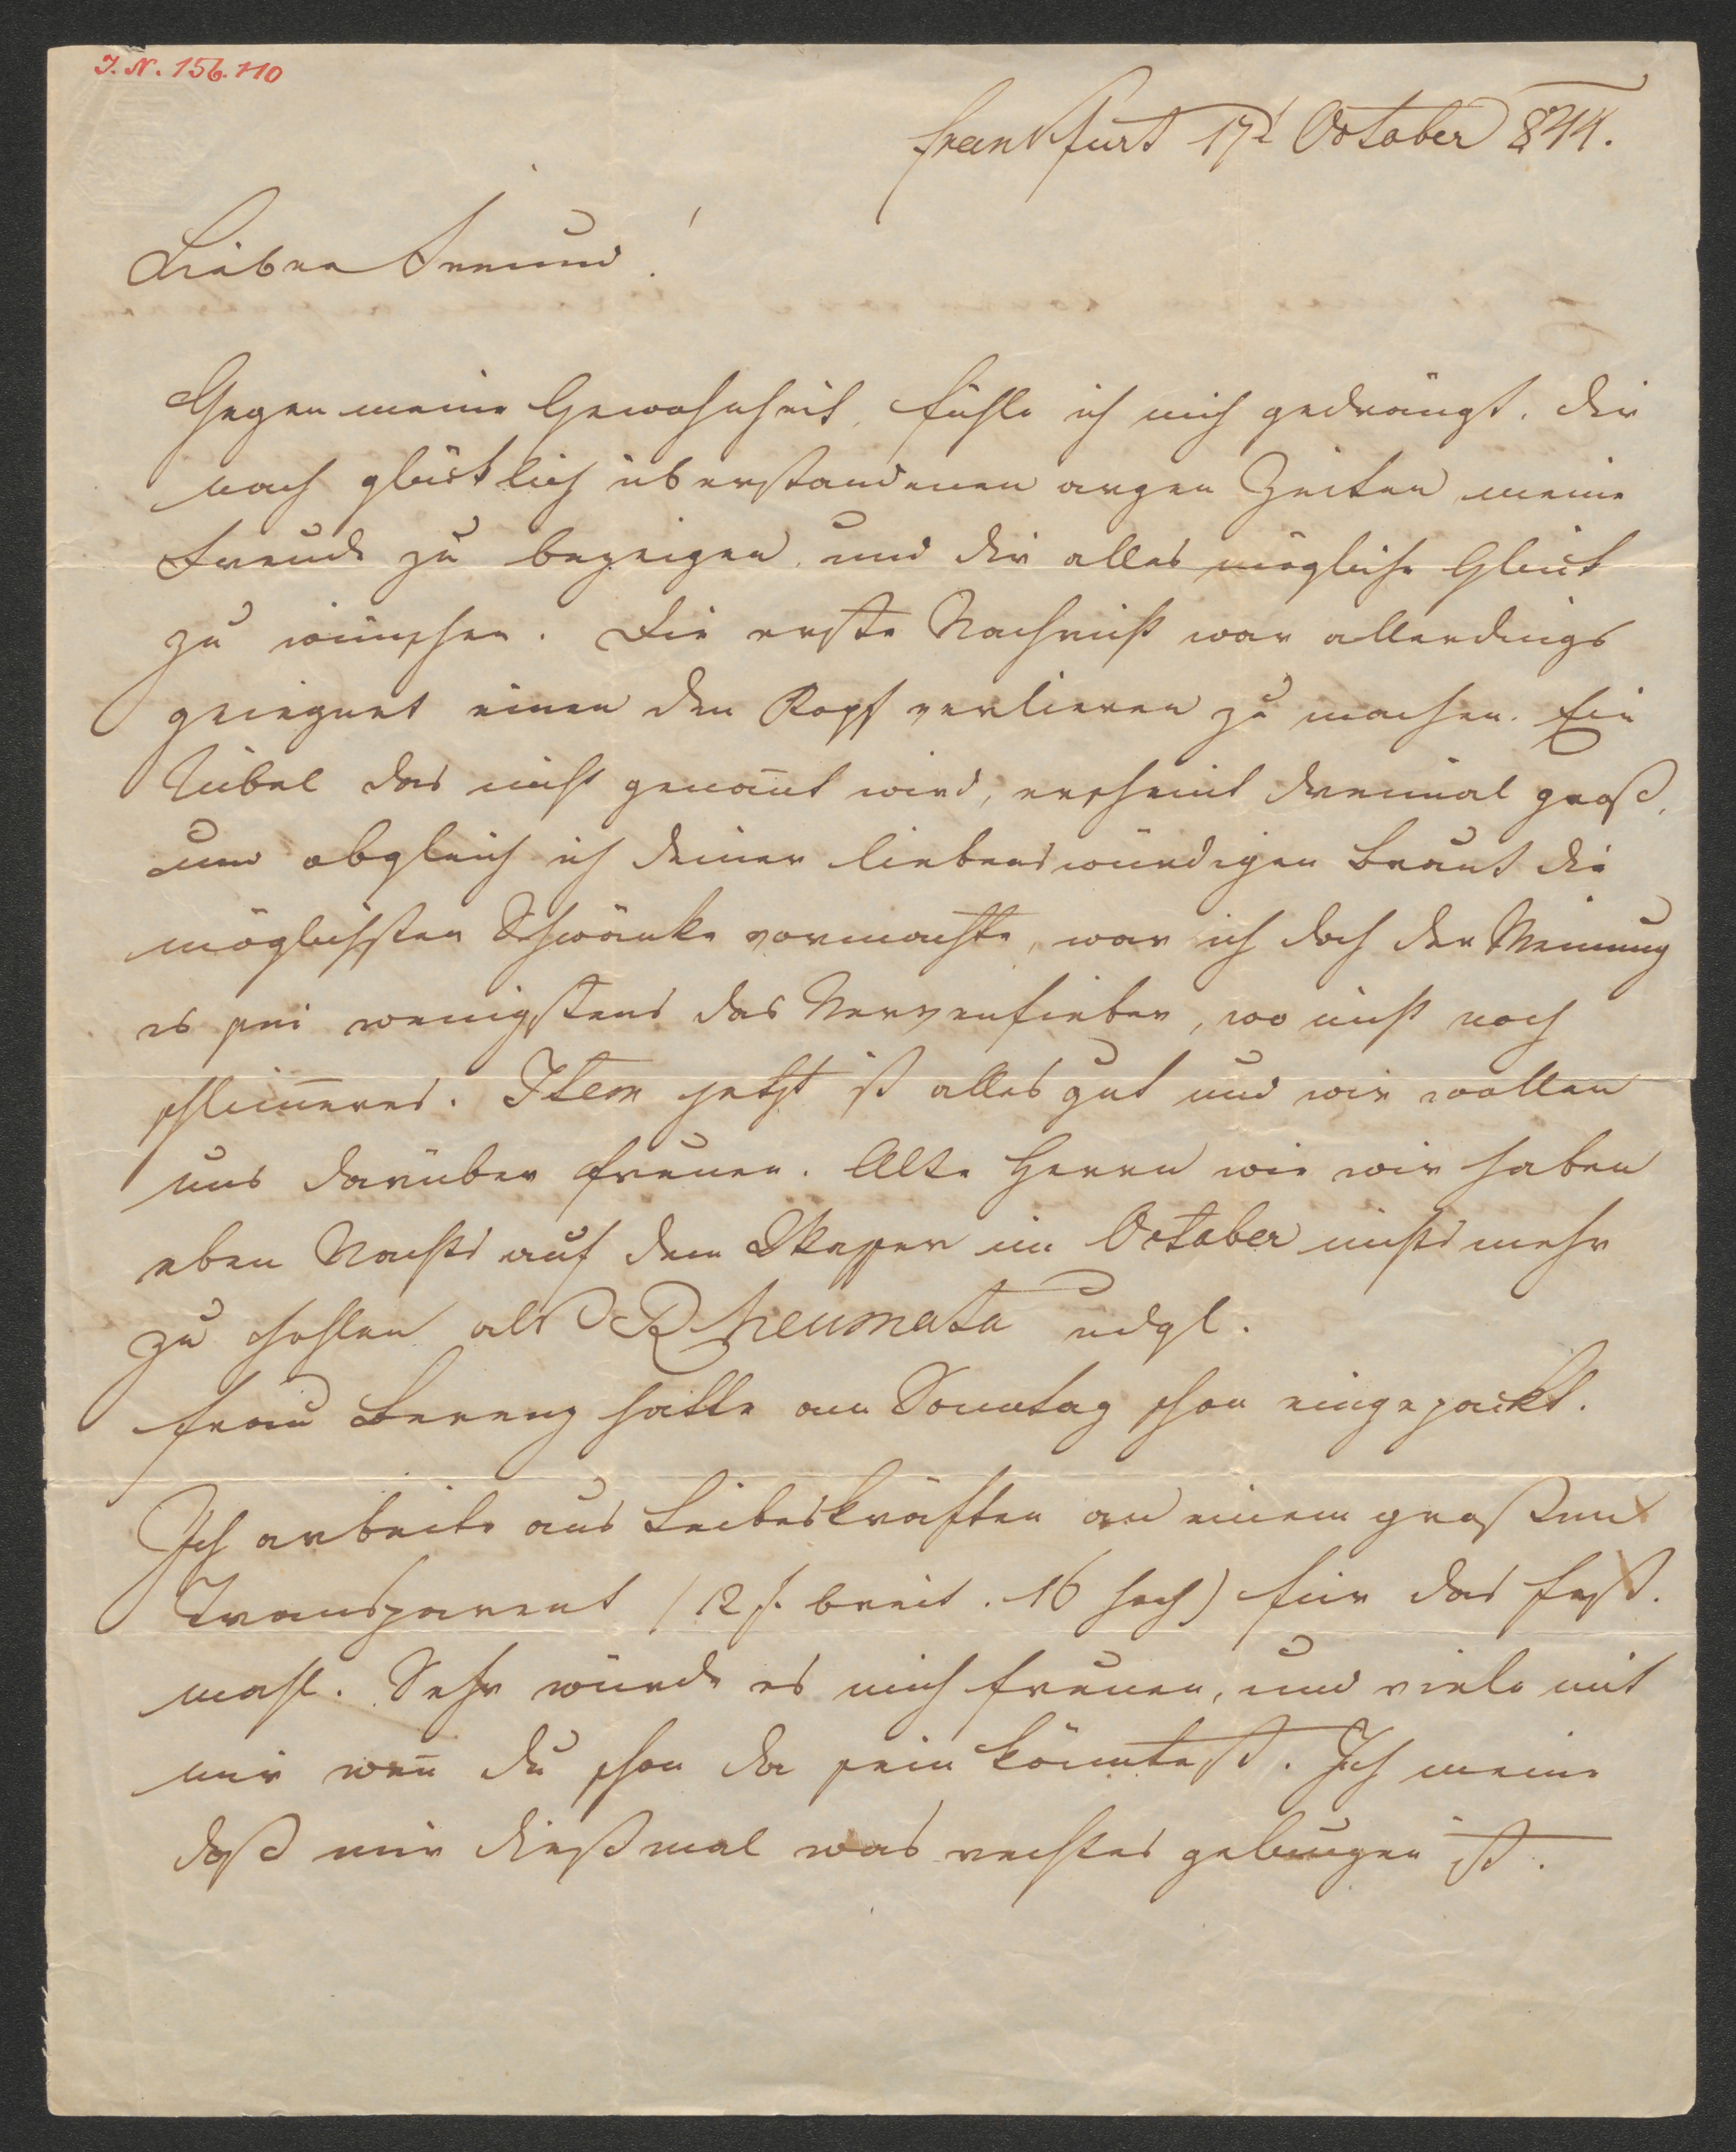 I. N. 156.110
Frankfurt 17t October 844.
Lieber Freund!
Gegen meine Gewohnheit, fühle ich mich gedrängt, dir
nach glücklich überstandenen argen Zeiten meine
Freude zu bezeigen, und dir alles mögliche Glück
zu wünschen. Die erste Nachricht war allerdings
geeignet einen den Kopf verlieren zu machen. Ein
Uibel das nicht genan̄t wird, erscheint dreimal groß,
und obgleich ich deiner liebenswürdigen Braut die
möglichsten Schwänke vormachte, war ich doch der Meinung
es sei wenigstens das Nervenfieber, wo nicht noch
schlim̄eres. Item jetzt ist alles gut und wir wollen
uns darüber freuen. Alte Herrn wie wir haben
eben Nachts auf dem im October nichts mehr
zu hohlen als Rheumata udgl.
Frau hatte am Sonntag schon eingepackt.
Ich arbeite aus Leibeskräften an einem großen
Transparent (12 f. breit. 16 hoch) für das Fest-
mahl. Sehr würde es mich freuen, und viele mit
mir wen̄ du schon da sein könntest. Ich meine
daß mir dießmal was rechtes gelungen ist.